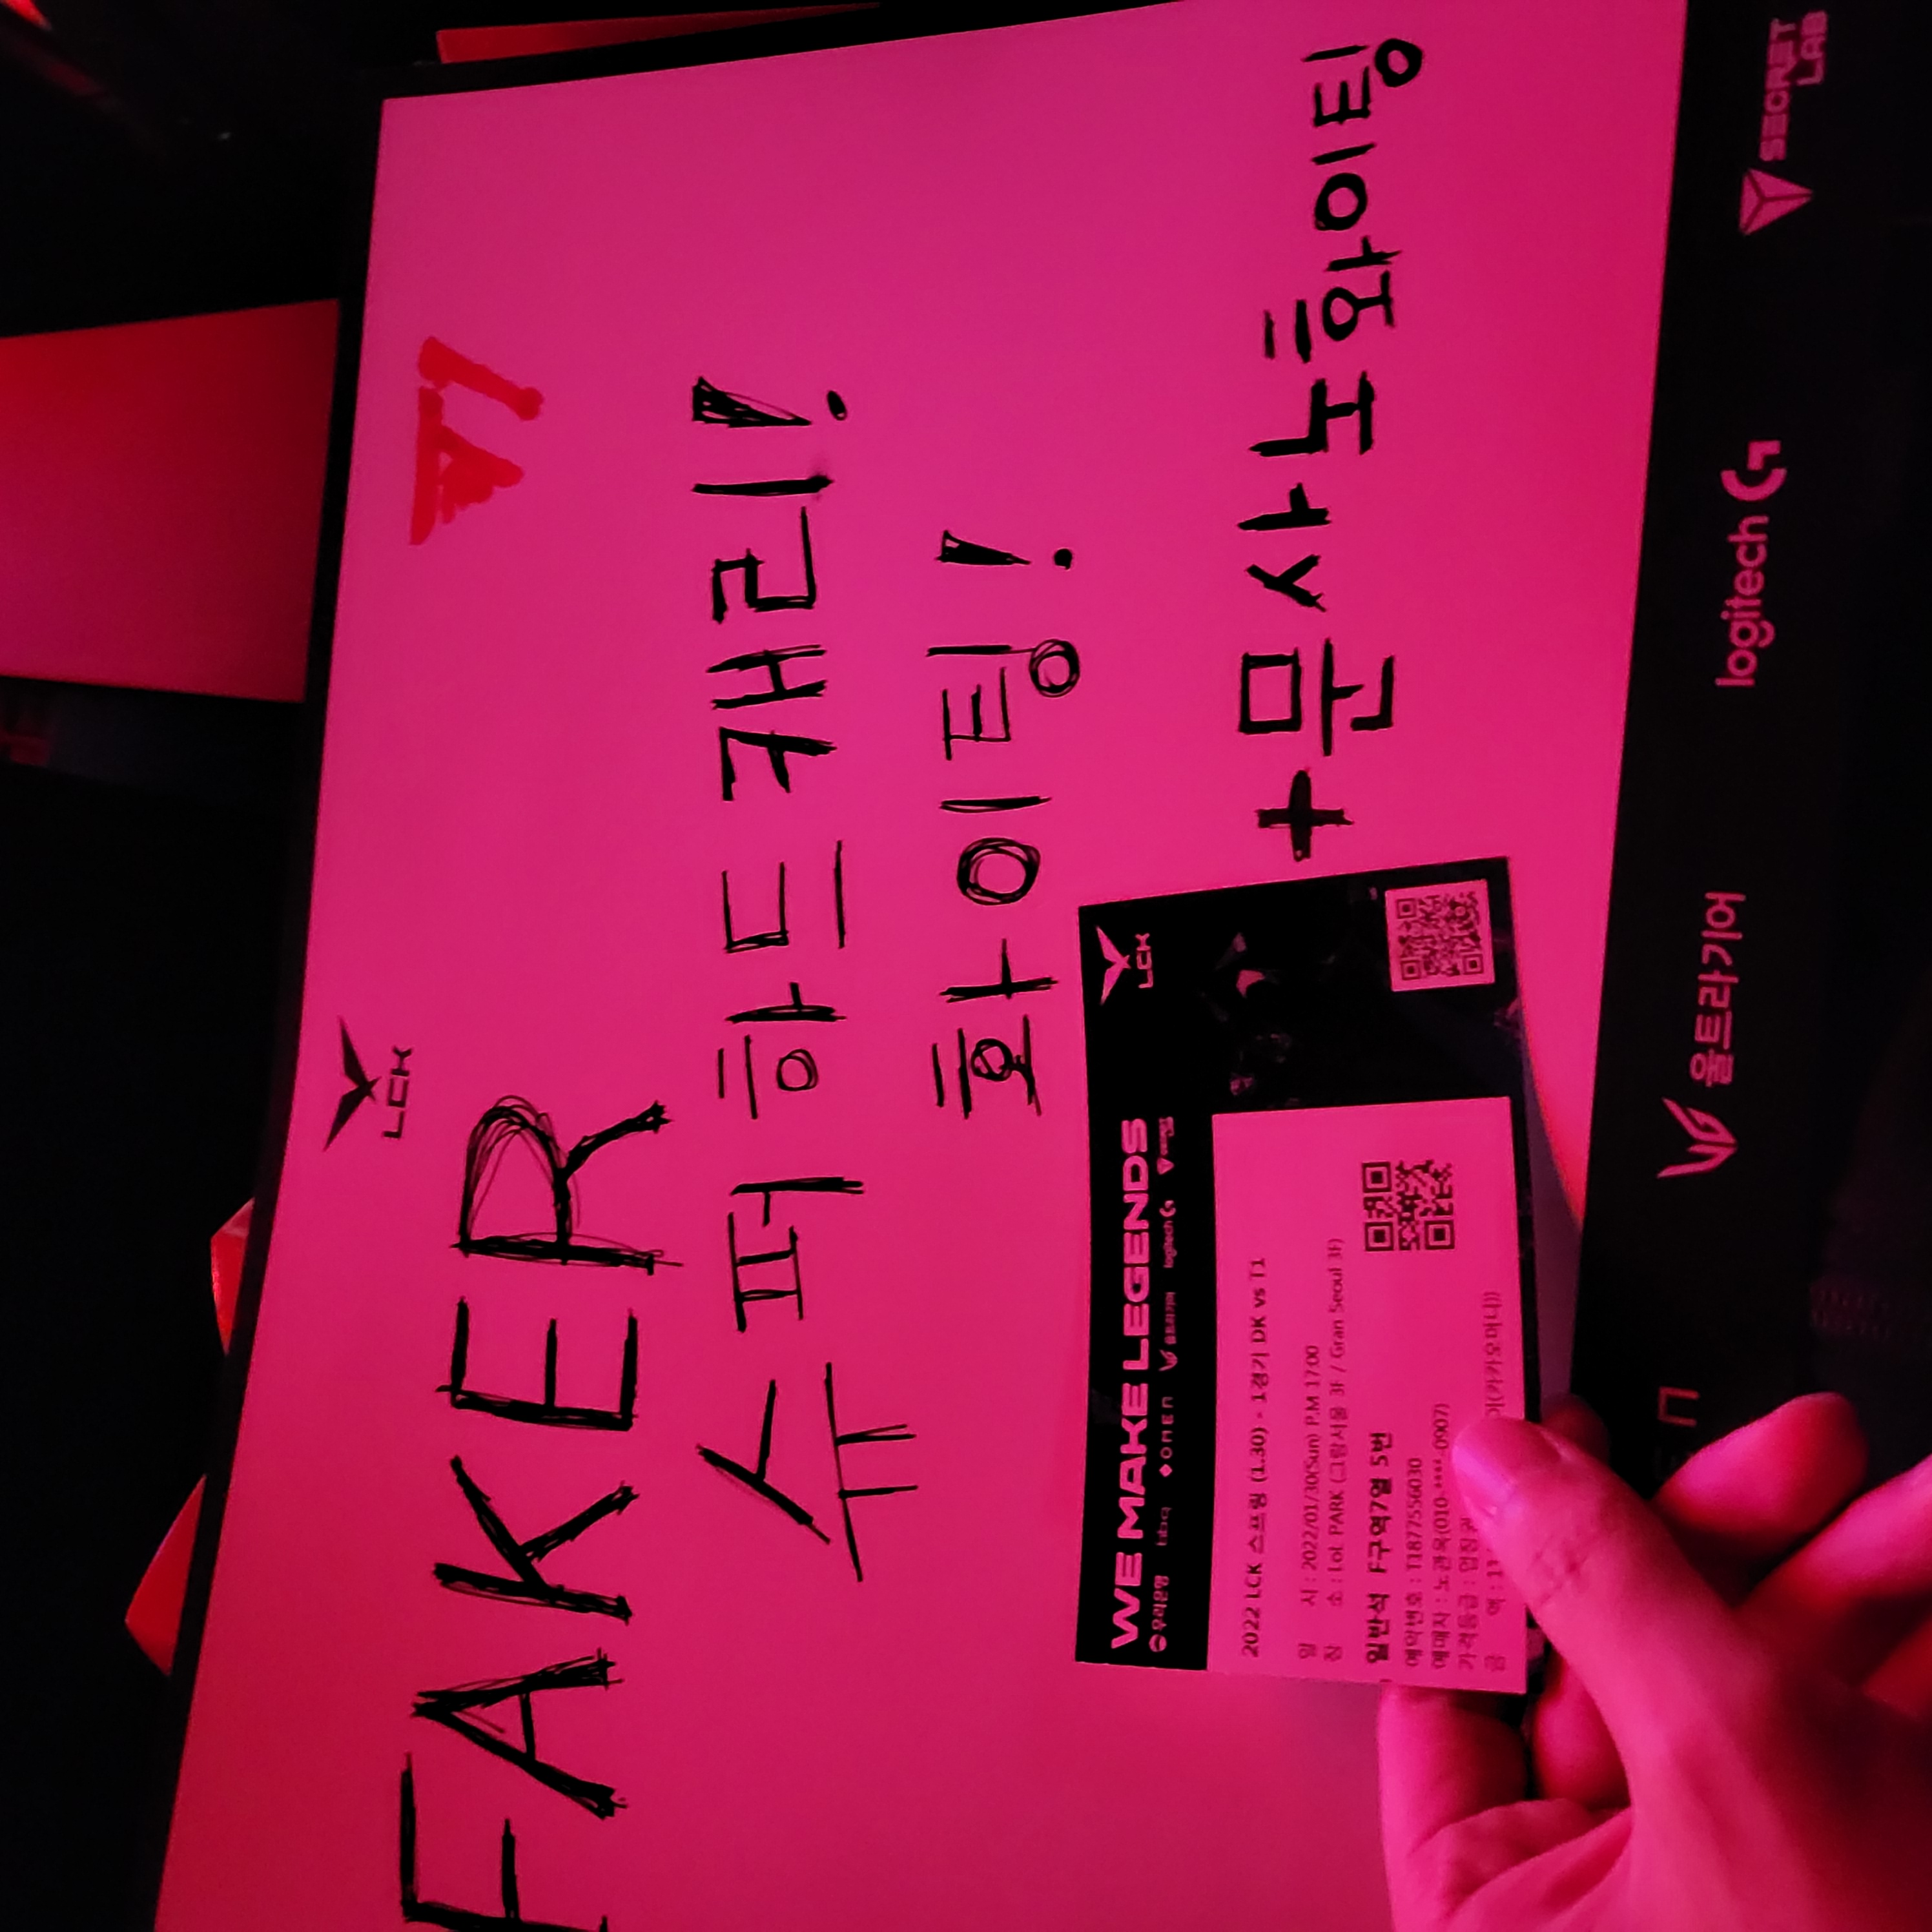 LCK
T1
FAKER
슈퍼 하드 캐리!
화이팅!
WE MAKE LEGENDS
LCK
우리은행 bbq OMEN 울트라기어 logitech G SECRET LAB
2022 LCK 스프링 (1.30) - 1경기 DK vs T1
일 시 : 2022/01/30(Sun) P.M 17:00
장 소 : LoL PARK (그랑서울 3F / Gran Seoul 3F)
일반석 F구역7열 5번
예약번호 : T1877556030
예매자 : 노관욱(010-****-0907)
가격등급 :
금 액 : 13 이(카카오머니))
+문사노화이팅
울트라기어
logitech G
SECRET
LAB